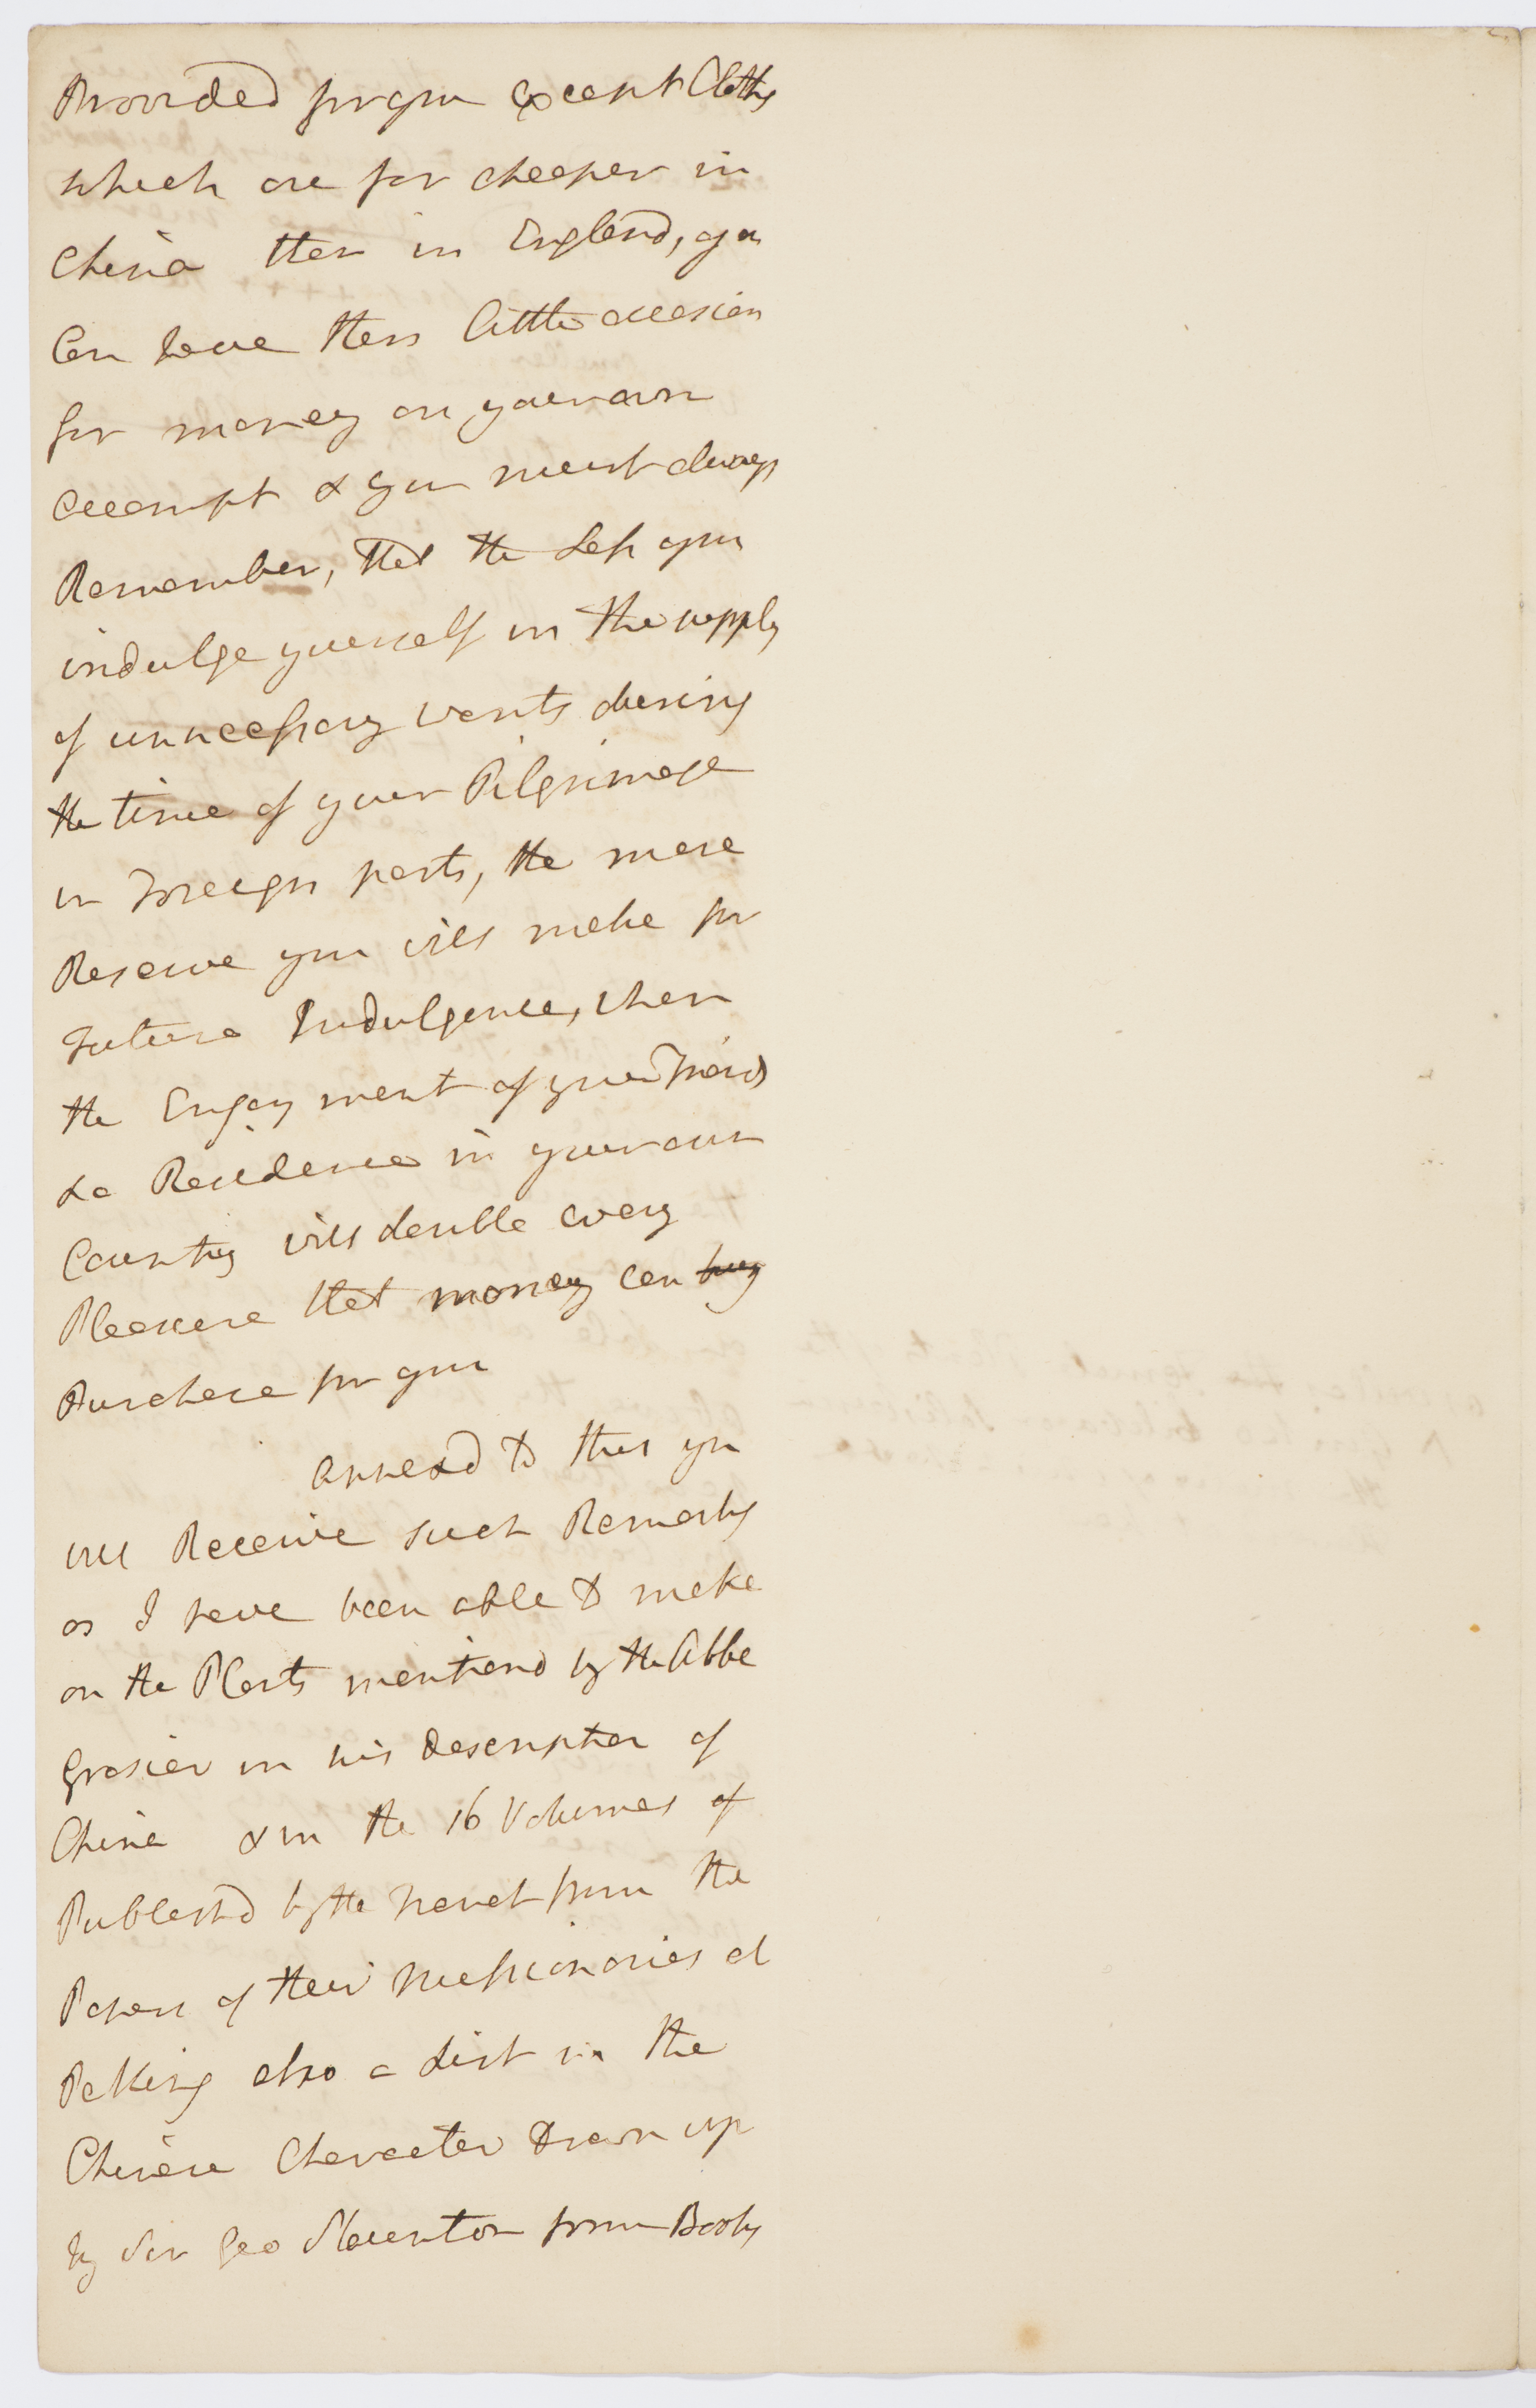 Provided for you except Cloths
which are far cheaper in
China than in England, you
Can have then little occasion
for money on your own
account & you must always
Remember, that the Less you
indulge yourself in the supply
of unnecessary wants during
the time of your Pilgrimage
in Foreign parts, the more
Reserve you will make for
Future Indulgence, when
the Enjoyment of your Friends
& a Residence in your own
Country will double every
Pleasure that money can buy
Purchase for you
annexd to this you
will Receive such Remarks
as I have been able to make
on the Plants mentiond by the Abbe
Grosier in his Description of
China & in the 16 Volumes of
Publishd by the French from the
Papers of their Missionaries at
Peking also a List in the
Chinese Character Drawn up
by Sir Geo Staunton from Books